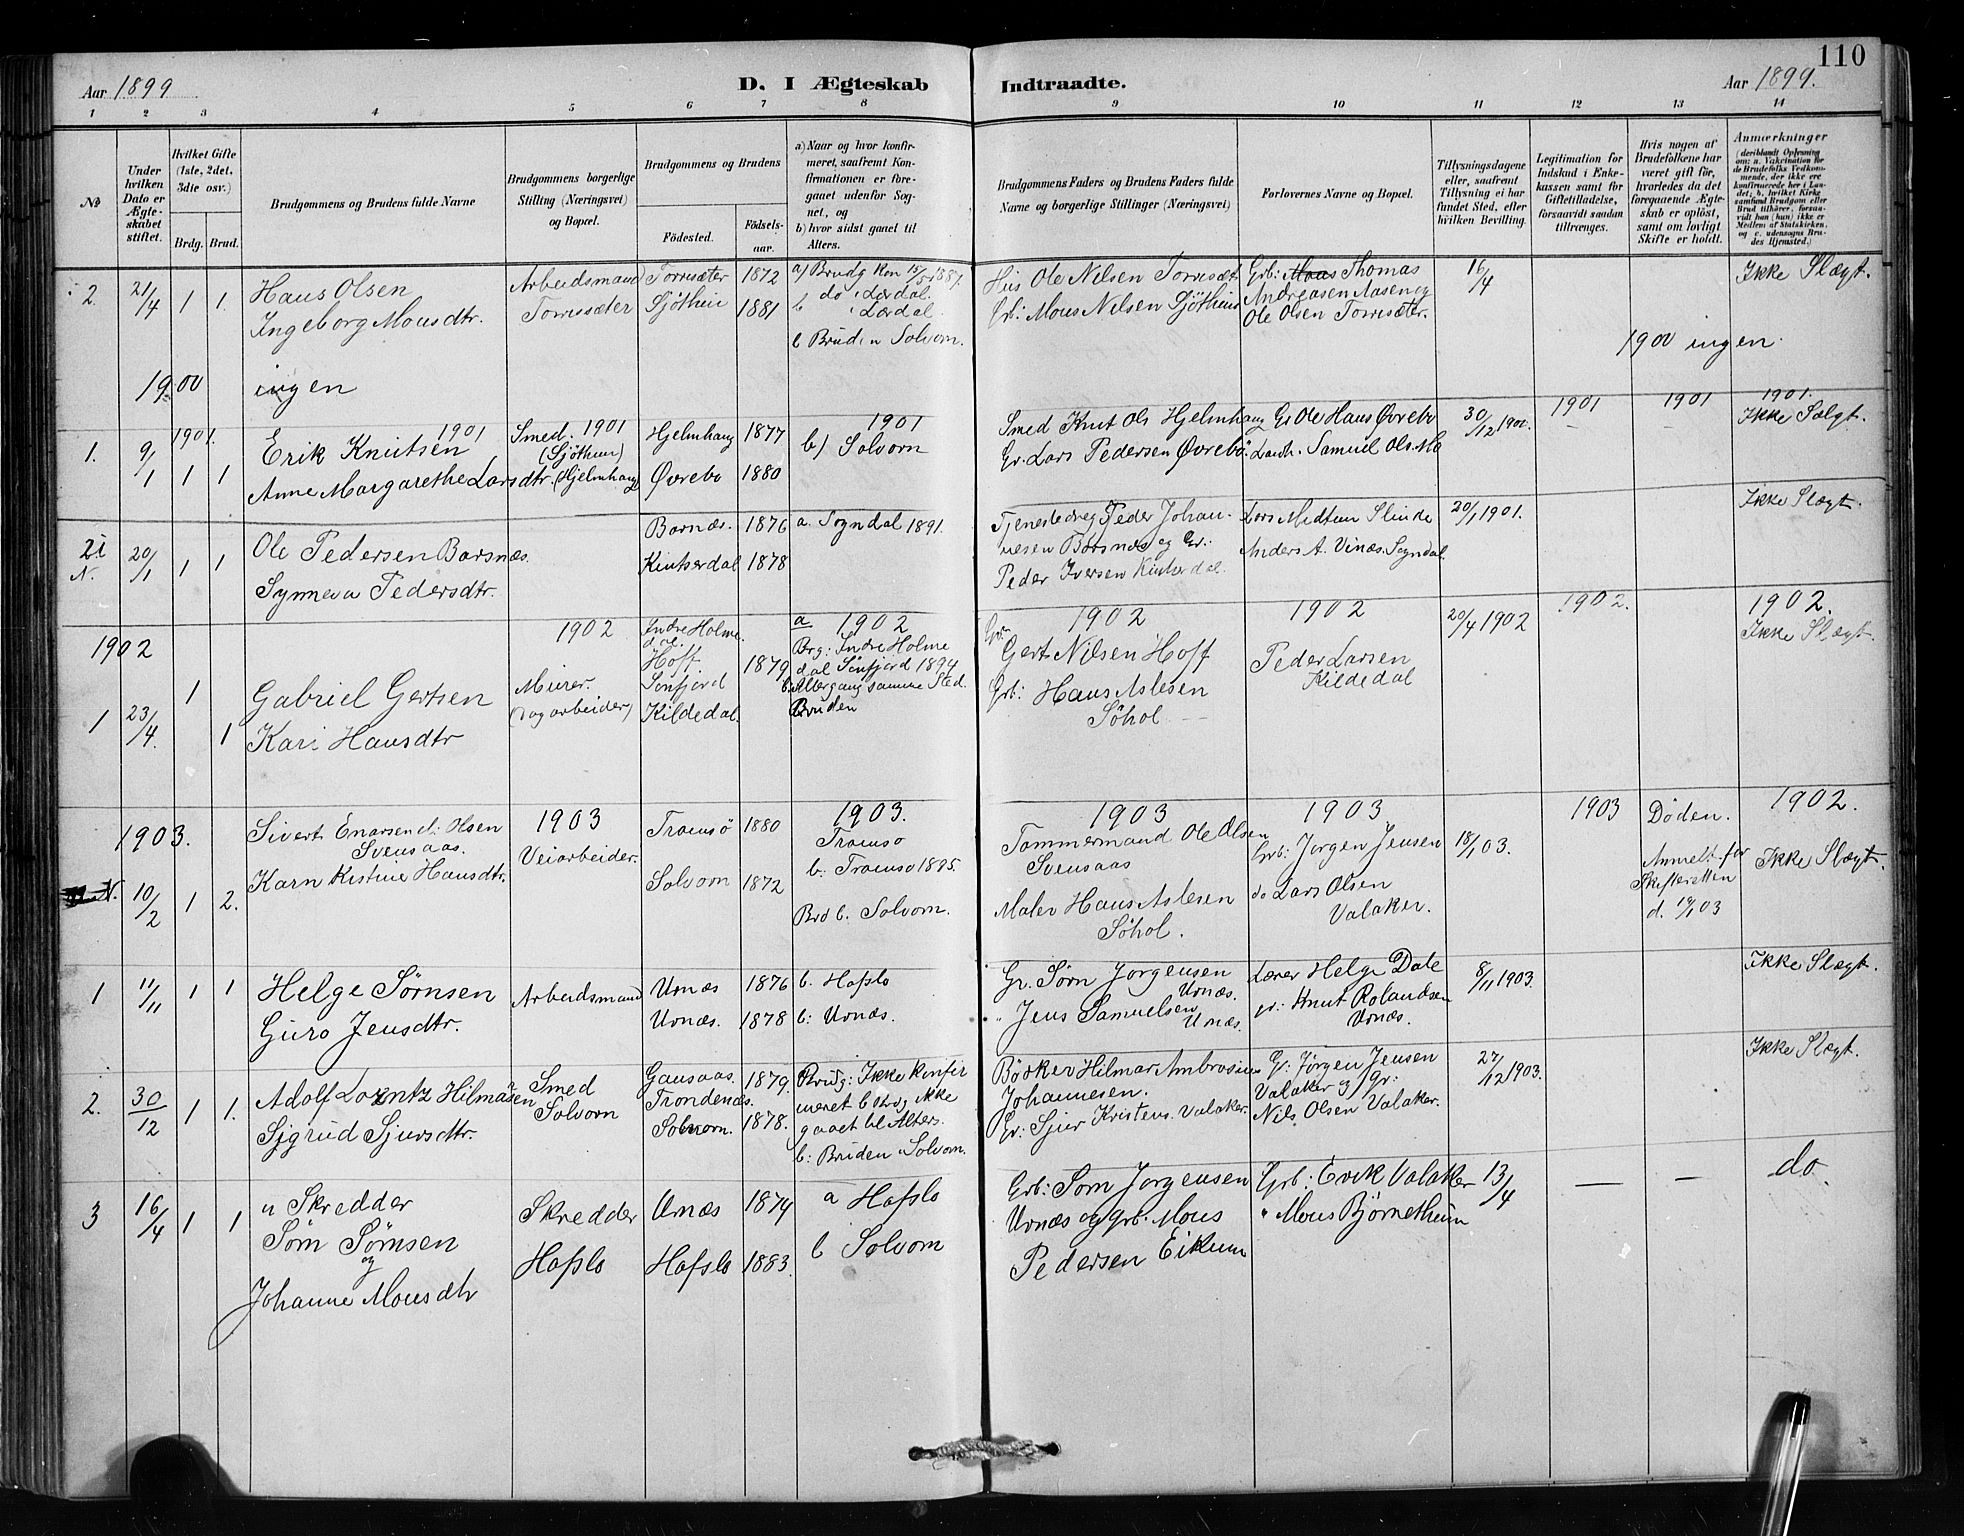 110
Aar 1899
D. I Ægteskab
Indtraadte.
Aar 1899.
1 2 3 4 5 6 7 8
9 10 11 12 13 14
No
Under hvilken Dato er Ægteskabet stiftet.
Hvilket Gifte (1ste, 2det, 3die osv.)
Brdg. Brud.
Brudgommens og Brudens fulde Navne
Brudgommens borgerlige Stilling (Næringsvei) og Bopæl.
Brudgommens og Brudens
Fødested.
Fødselsaar.
a) Naar og hvor konfirmeret, saafremt Konfirmationen er foregaaet udenfor Sognet, og
b) hvor sidst gaaet til Alters.
Brudgommens Faders og Brudens Faders fulde Navne og borgerlige Stillinger (Næringsvei)
Forlovernes Navne og Bopæl.
Tillysningsdagene eller, saafremt Tillysning ei har fundet Sted, efter hvilken Bevilling.
Legitimation for Indskud i Enkekassen samt for Giftetilladelse, forsaavidt saadan tiltrænges.
Hvis nogen af Brudefolkene har været gift før, hvorledes da det foregaaende Ægteskab er opløst, samt om lovligt Skifte er holdt.
Anmærkninger
2. 21/4 1 1.
Hans Olsen
Ingeborg Monsdtr.
Arbeidsmand
Torrisæter
Torrisæter 1872
Sjøthun 1881
a) Brudg kon 15/5 1887.
do i Lærdal.
b i Lærdal.
b Bruden Solvorn.
Hus Ole Nilsen Torrisæt.
Grb: Mons Nilsen Sjøthun
Grb: Thomas
Andreasen Aasen og
Ole Olsen Torrisæter.
16/4
Ikke Slægt.
1900 ingen.
1900 ingen
1901.
1901
1901
1901
1901
1901
1901.
1. 9/1 1 1
Erik Knutsen
Anne Margarethe Larsdtr.
Smed.
(Sjøthun)
(Hjelmhaug)
Hjelmhaug 1877
Øvrebø 1880
b) Solvorn
Smed Knut Ols Hjelmhaug
Gr. Lars Pedersen Øvrebø
Gr Ole Hans Øvrebø
Samuel Ols.
30/12 1900.
Ikke Sælgt.
20/1 1 1
Ole Pedersen Barsnæs.
Synneva Pedersdtr.
Barnæs. 1876
Kintserdal 1878
a. Sogndal 1891.
Peder Johannesen Barsnæs og Gr:
Peder Iversen Kinserdal.
Lars Midtun Slinde
Anders A. Vinæs. Sogndal
20/1 1901.
Ikke Slægt.
1902
1902
1902
1902
1902
1902.
1902.
1 23/4. 1 1
Gabriel Gertsen
Kari Hansdtr
Murer.
(og arbeider)
Indre Holme
Hoff.
Sønfjord
Kildedal.
1879
a
Brg: Indre Holme
dal Sønfjord 1894
b. Altergang samme Sted.
Bruden
Gert Nilsen Hoff
Grb: Hans Aslesen
Søhol
Peder Larsen
Kildedal
20/4 1902
Ikke Slægt.
1903.
1903
1903.
1903
1903
1903
1902.
N. 10/2 1 2.
Sivert Enarsen d: Olsen
Svensaas.
Karn Kistine Hansdtr.
Veiarbeider.
Tromsö 1880
Solvorn 1872
Tromsø
b: Tromsø 1895.
Brd b. Solvorn.
Tømmermand Ole Olsen
Svensaas
Maler Hans Aslesen
Søhol.
Grb: Jørgen Jensen
do Lars Olsen
Valaker.
18/1 03.
Døden.
Anmeldt for
Skifteretten
d. 19/1 03
Ikke Slægt.
1 11/11 1 1
Helge Sørnsen
Guro Jensdtr.
Arbeidsmand
Urnæs 1876
Urnæs. 1878
b. Hafslo
b: Urnæs.
Gr. Sørn Jørgensen
Urnæs.
" Jens Samuelsen
Urnæs.
Lærer Helge Dale
gr: Knut Rolandsen
Urnæs.
8/11 1903.
Ikke Slægt.
2. 30/12 1 1.
Adolf Lorentz Hilmasen
Sjgrud Sjursdtr.
Smed
Solvorn
Gausaas. 1879.
Trondenæs.
Solvorn. 1878.
Brudg: Ikke konfir
meret b Brdg ikke
gaaet til Alters.
b: Bruden Solvorn.
Bödker Hilmar Ambrosius
Johannesen.
Gr: Sjur Kristens. Valaker.
Gr. Jørgen Jensen
Valaker og Gr:
Nils Olsen Valaker.
27/12 1903.
Ikke Slægt.
3 16/4 1 1
" Skredder
Sørn Sørnsen
og
Johanne Monsdtr
Skredder
Hafslo
Urnæs 1874
Hafslo 1883.
a Hafslo
b Solvorn
Grb: Sørn Jørgensen
Urnæs og grb. Mons
Pedersen Eikum
Grb: Erik Valaker
" Mons Bjørnethun
13/4
— —
do